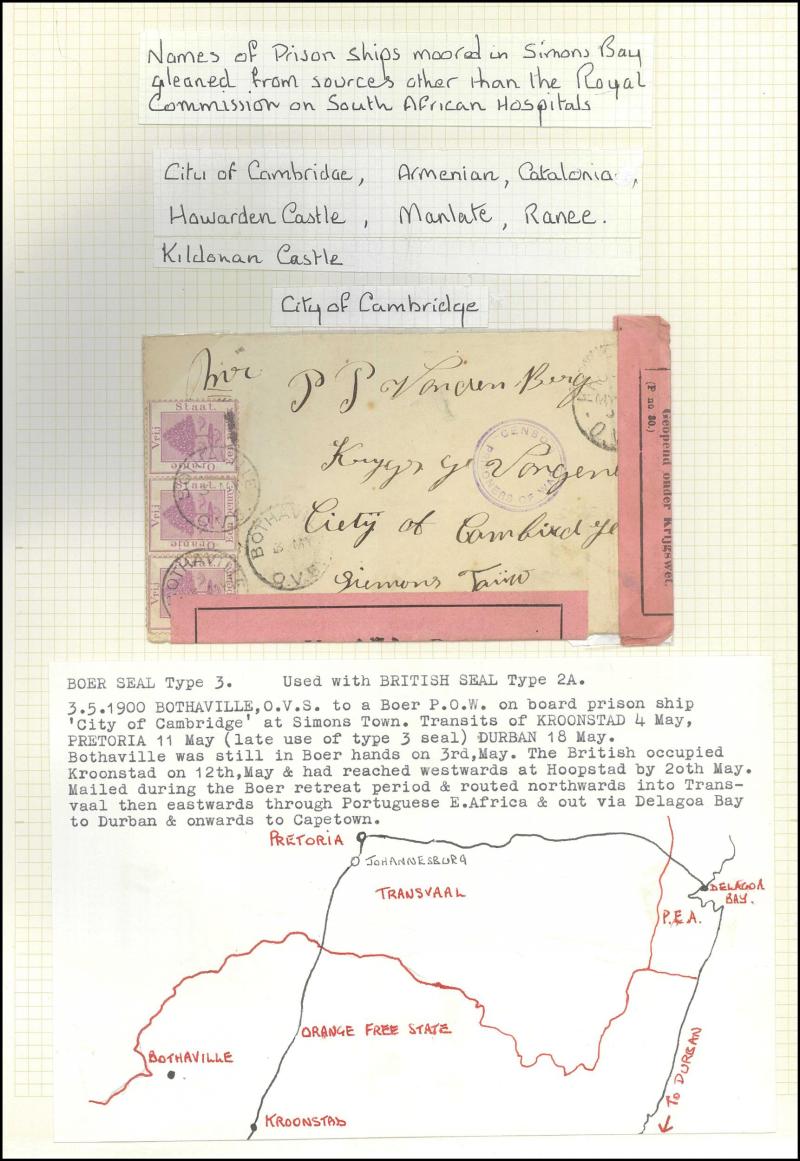 Names of Prison ships moored in Simons Bay
gleaned from sources other than the Royal
Commission on South African Hospitals
City of Cambridge, Armenian, Catalonia,
Hawarden Castle, Manlate, Ranee.
Kildonan Castle
City of Cambridge
Mr P P Vanden Berg
Kryggs ge Vangene
Ciety of Cambirdge
Siemons Tauw
Vrij Staat. Oranje
Vrij Staat. Oranje
Vrij
BOTHAVILLE
O.V.S.
BOTHAVILLE
O.V.S.
BOTHAVILLE
CENSOR
PRISONERS OF WAR
MY
O.V.
Geopend onder Krijgswet.
(P no 30.)
BOER SEAL Type 3. Used with BRITISH SEAL Type 2A.
3.5.1900 BOTHAVILLE,O.V.S. to a Boer P.O.W. on board prison ship
'City of Cambridge' at Simons Town. Transits of KROONSTAD 4 May,
PRETORIA 11 May (late use of type 3 seal) DURBAN 18 May.
Bothaville was still in Boer hands on 3rd,May. The British occupied
Kroonstad on 12th,May & had reached westwards at Hoopstad by 2oth May.
Mailed during the Boer retreat period & routed northwards into Trans-
vaal then eastwards through Portuguese E.Africa & out via Delagoa Bay
to Durban & onwards to Capetown.
PRETORIA
JOHANNESBURG
TRANSVAAL
DELAGOA
BAY.
P.E.A.
ORANGE FREE STATE
BOTHAVILLE
KROONSTAD
TO DURBAN